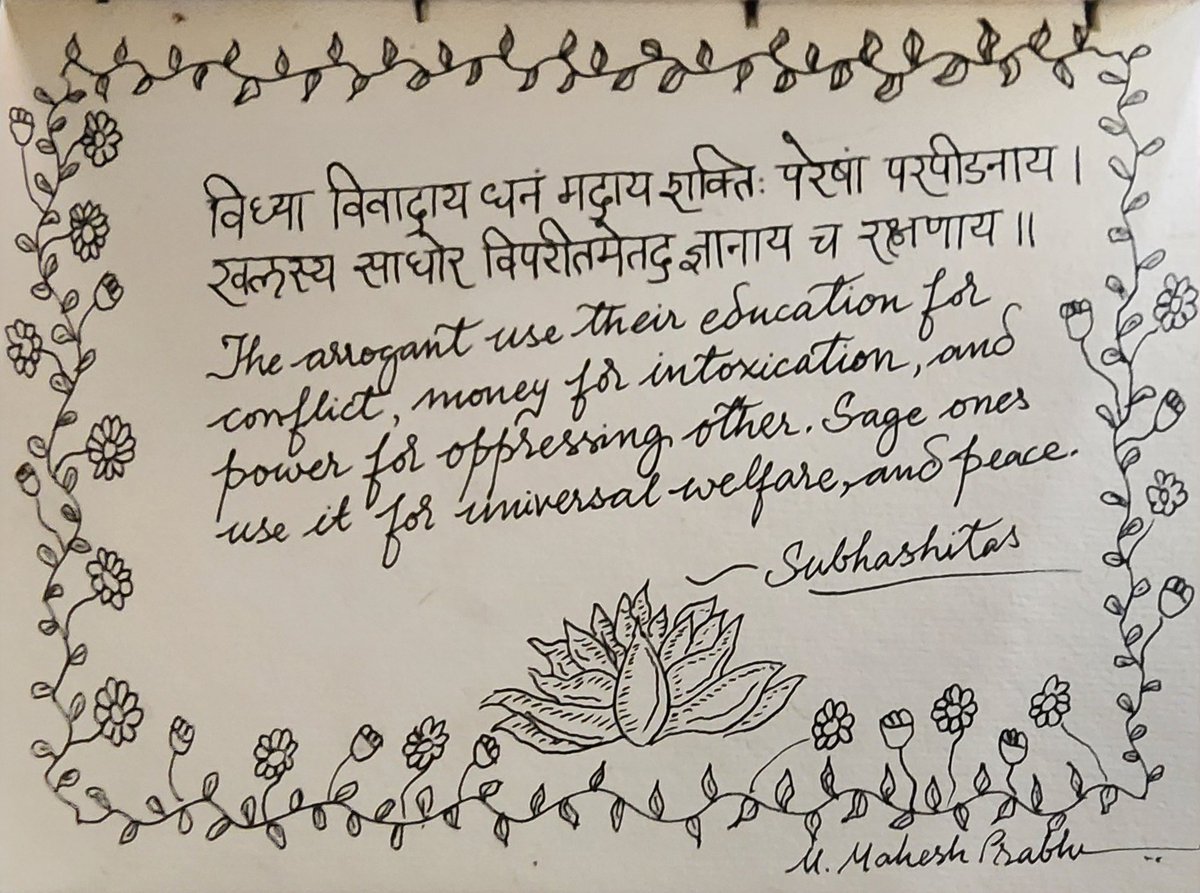 विध्या विवादाय धनं मदाय शक्तिः परेषां परपीडनाय ।
खलस्य साधोर विपरीतमेतद ज्ञानाय च रक्षणाय ॥
The arrogant use their education for
conflict, money for intoxication, and
power for oppressing other. Sage ones
use it for universal welfare, and peace.
~ Subhashitas
M. Mahesh Prabhu